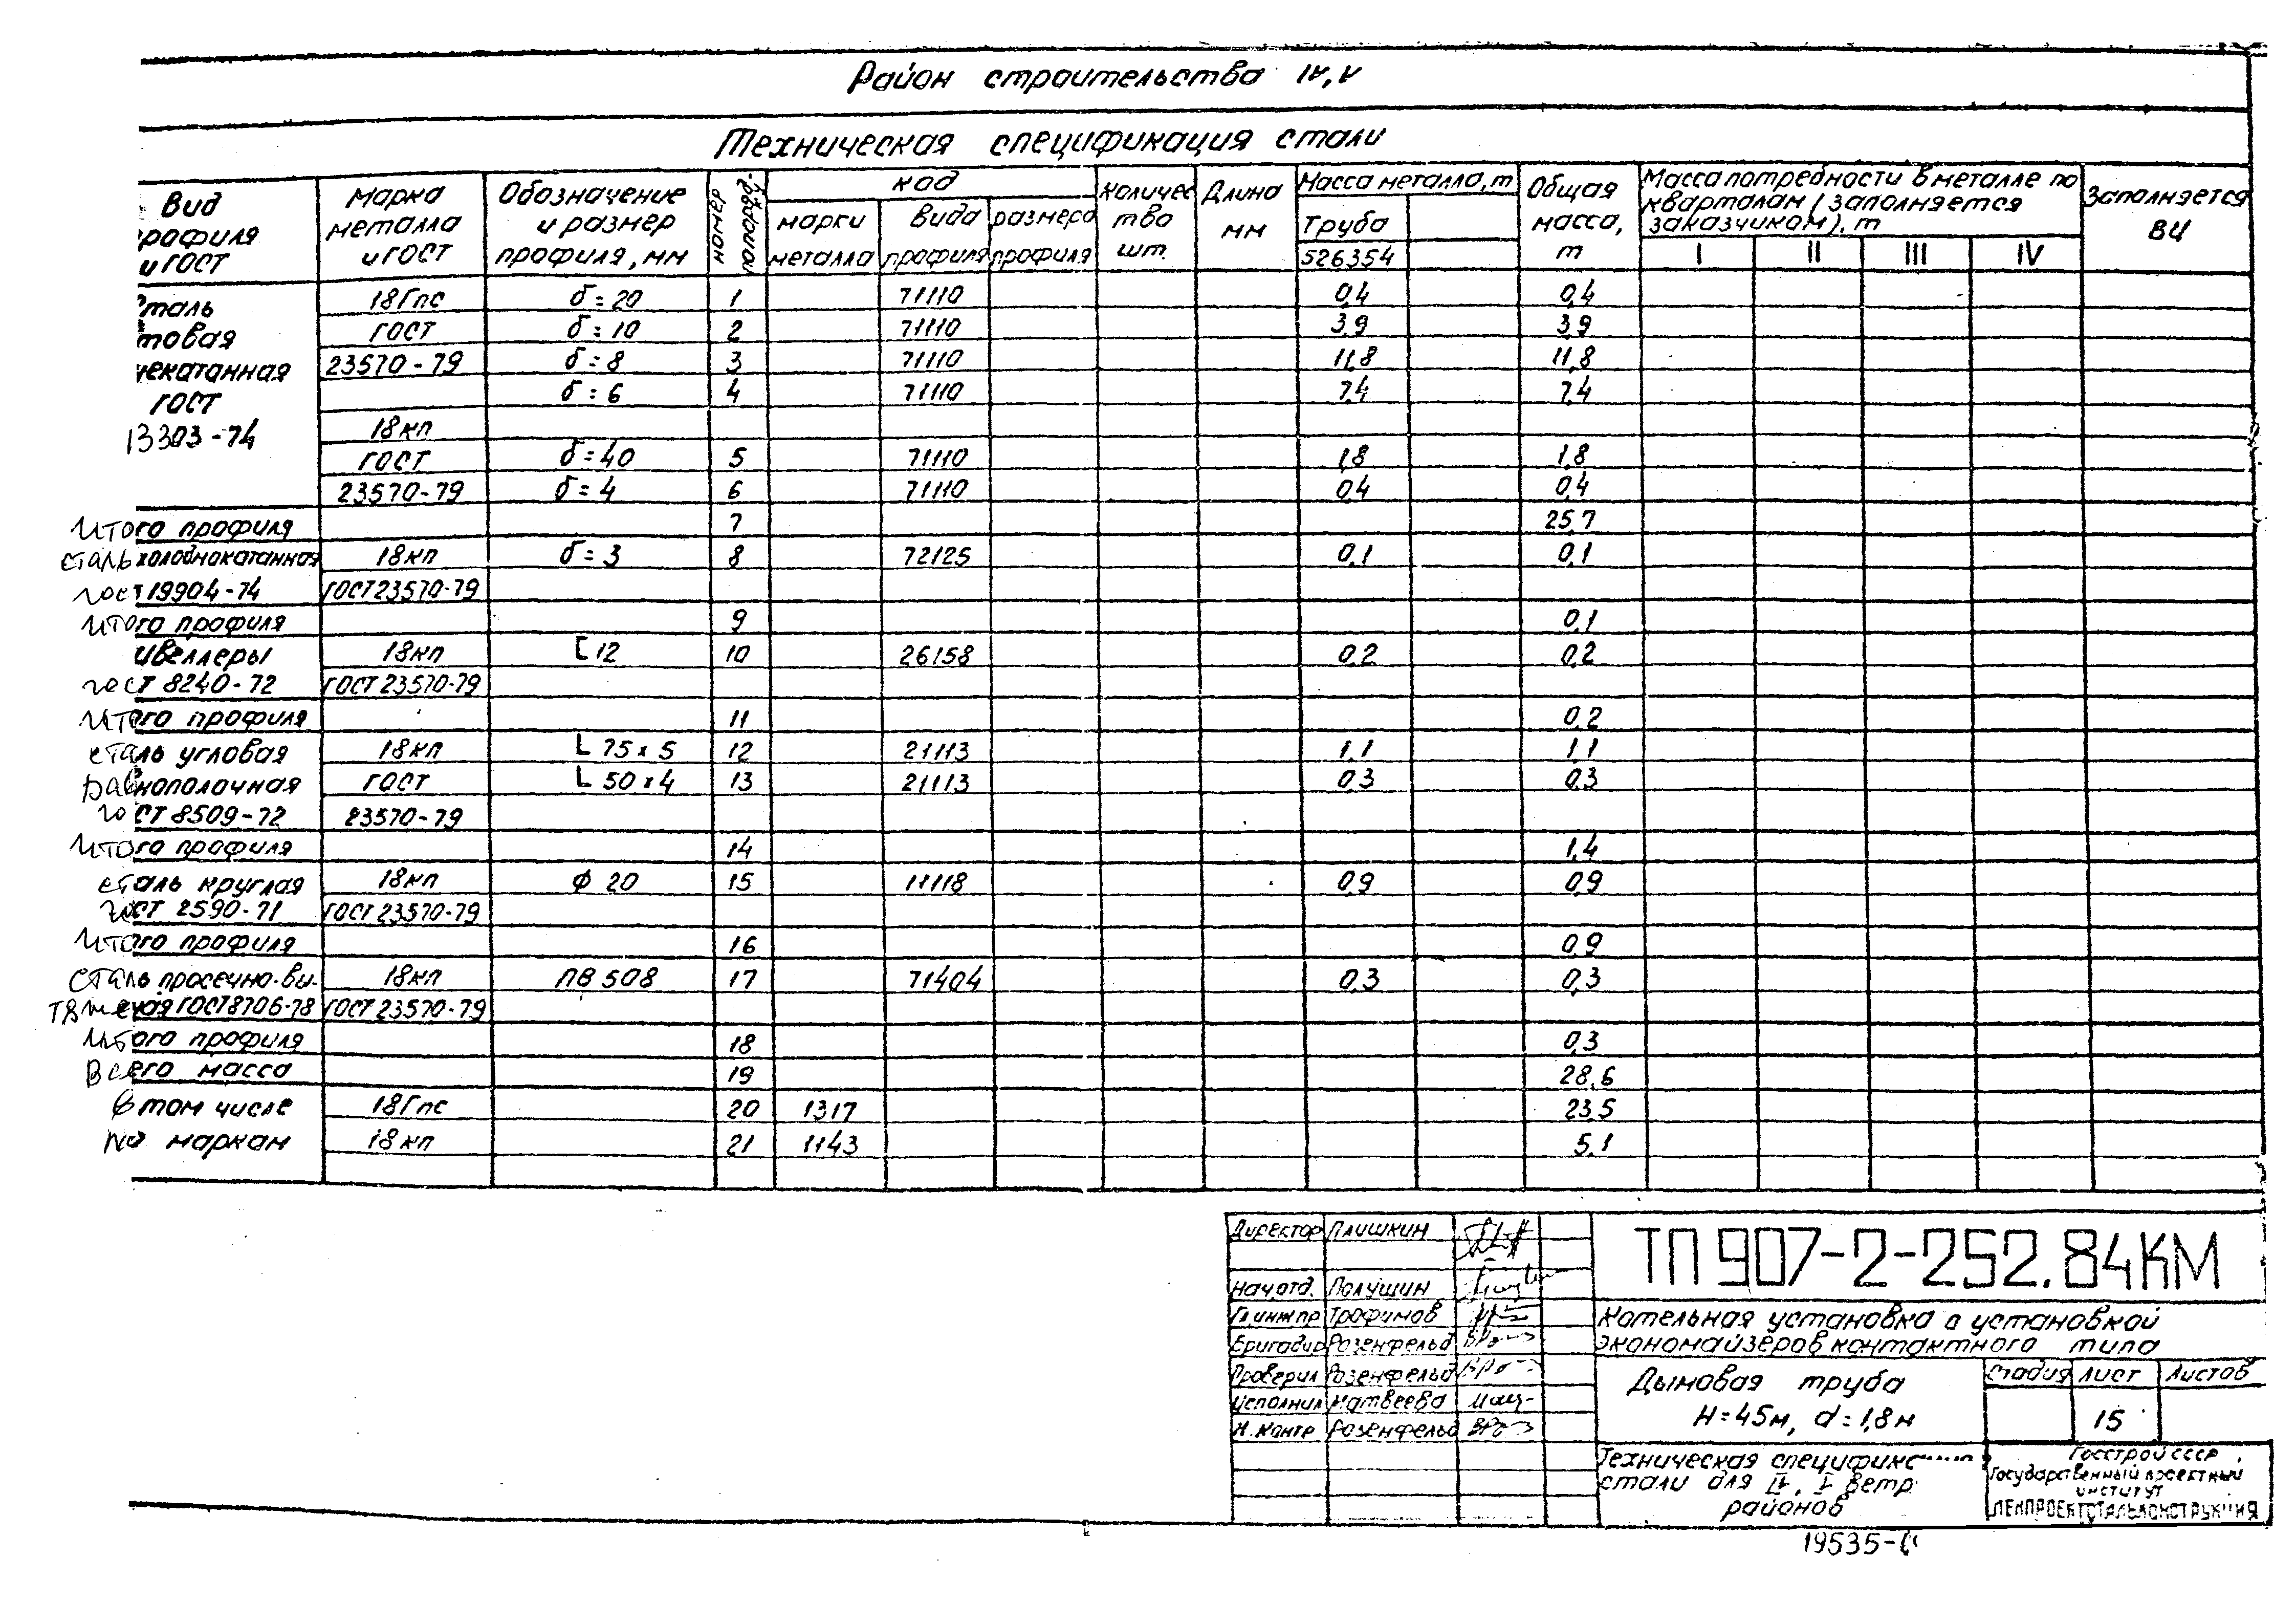 Район строительства IV, V
Техническая спецификация стали
Вид рофиля и ГОСТ | Марка металла и ГОСТ | Обозначение и размер профиля, мм | номер по порядку | код | Количество шт. | Длина мм | Масса металла, т | Общая масса, т | Масса потребности в металле по кварталам (заполняется заказчиком), т | Заполняется ВЦ
марки металла | вида профиля | размера профиля | Труба | I | II | III | IV
526354
сталь | 18Гпс | δ=20 | 1 | 71110 | 0,4 | 0,4
товая | ГОСТ | δ=10 | 2 | 71110 | 3,9 | 3,9
чекатанная | 23570-79 | δ=8 | 3 | 71110 | 11,8 | 11,8
ГОСТ | δ=6 | 4 | 71110 | 7,4 | 7,4
13303-74 | 18кп
ГОСТ | δ=40 | 5 | 71110 | 1,8 | 1,8
23570-79 | δ=4 | 6 | 71110 | 0,4 | 0,4
Итого профиля | 7 | 25,7
сталь холоднокатанная | 18кп | δ=3 | 8 | 72125 | 0,1 | 0,1
гост 19904-74 | ГОСТ 23570-79
Итого профиля | 9 | 0,1
ивеллеры | 18кп | [12 | 10 | 26158 | 0,2 | 0,2
гост 8240-72 | ГОСТ 23570-79
Итого профиля | 11 | 0,2
сталь угловая | 18кп | L 75х5 | 12 | 21113 | 1,1 | 1,1
равнополочная | ГОСТ | L 50х4 | 13 | 21113 | 0,3 | 0,3
гост 8509-72 | 23570-79
Итого профиля | 14 | 1,4
сталь круглая | 18кп | ϕ 20 | 15 | 11118 | 0,9 | 0,9
гост 2590-71 | ГОСТ 23570-79
Итого профиля | 16 | 0,9
сталь просечно-вы- | 18кп | ПВ 508 | 17 | 71404 | 0,3 | 0,3
тяжная ГОСТ 8706-78 | ГОСТ 23570-79
Итого профиля | 18 | 0,3
Всего масса | 19 | 28,6
в том числе | 18Гпс | 20 | 1317 | 23,5
по маркам | 18кп | 21 | 1143 | 5,1
Директор Плишкин
Нач.отд. Полушин
Гл.инж.пр Трофимов
Бригадир Розенфельд
Проверил Розенфельд
Исполнил Матвеева
Н. контр Розенфельд
ТП 907-2-252.84КМ
Котельная установка с установкой
экономайзеров контактного типа
Дымовая труба
H=45м, d=1,8м
Стадия Лист Листов
15
Техническая специфик
стали для IV, V ветр
районов
Госстрой СССР
Государственный проектный
институт
ЛЕНПРОЕКТСТАЛЬКОНСТРУКЦИЯ
19535-